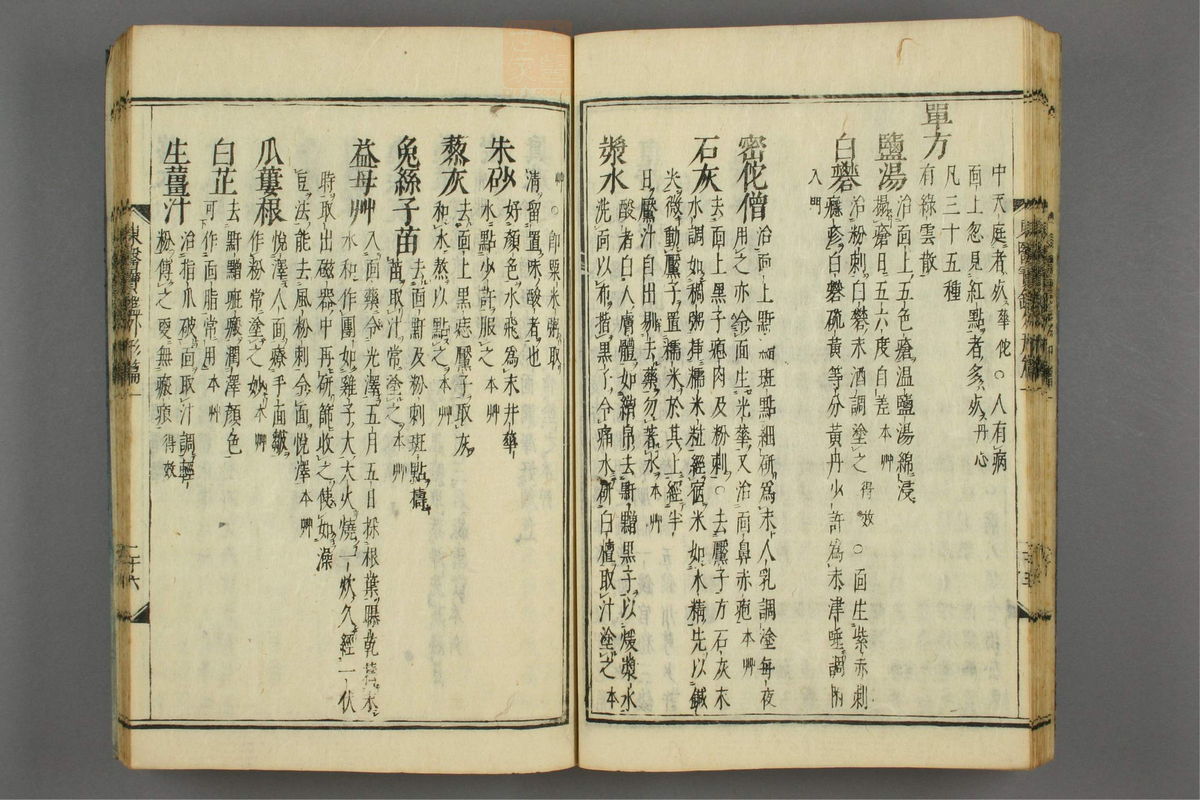 中天庭者亥華佗○人有病
面上忽見紅點者多死丹心
單方
凡三十五種
有綠雲散
鹽湯治面上五色瘡溫鹽湯綿浸
搨瘡日五六度自差本艸
白礬治粉刺白礬末酒調塗之得效○面生紫赤刺
癮疹白礬硫黃等分黃丹少許爲末津唾調付
入門
密佗僧治面上䵟斑點細硏爲末人乳調塗每夜
用之亦令面生光華又治面鼻赤疱本艸
石灰去面上黑子瘜肉及粉刺○去黶子方石灰末
水調如稠粥揷糯米粒經宿米如水精先以鍼
微動黶子置糯米於其上經半
日黶汁自出剔去藥勿着水本艸
漿水酸者白人膚體如繒帛去䵟䵴黑子以煖漿水
洗面以布揩黑子令痛水硏白檀取汁塗之本
艸○卽粟米粥取
淸留置味酸者也
朱砂好顔色水飛爲末井華
水點少許服之本艸
藜灰去面上黑痣黶子取灰
和水熬以點之本艸
兔絲子苗去面䵟及粉刺斑點擣
苗取汁常塗之本艸
益母艸入面藥令光澤五月五日採根葉曝乾擣末
水和作團如雞子大大火燒一炊久經一伏
時取出磁器中再硏篩收之使如澡
豆法能去風粉刺令面悅澤本艸
瓜蔞根悅澤人面療手面皺
作粉常塗之妙本艸
白芷去䵟䵴斑瘢潤澤顔色
可作面脂常用本艸
生薑汁治指爪破面取汁調輕
粉傅之更無瘢痕得效
東醫寶鑑外形篇一
二十六